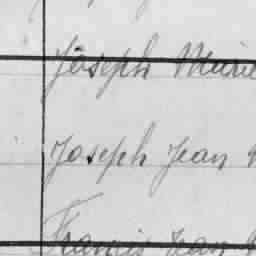 Joseph Marie
Joseph Jean
Francis Jean